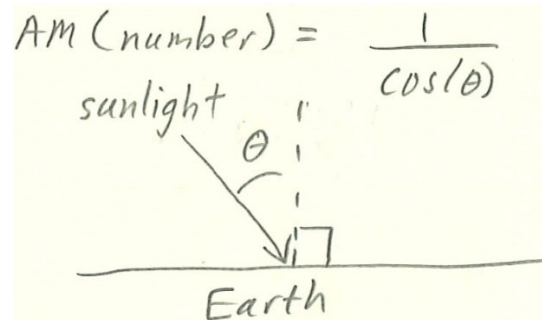 AM (number) = 1/cos(θ)
sunlight
θ
Earth